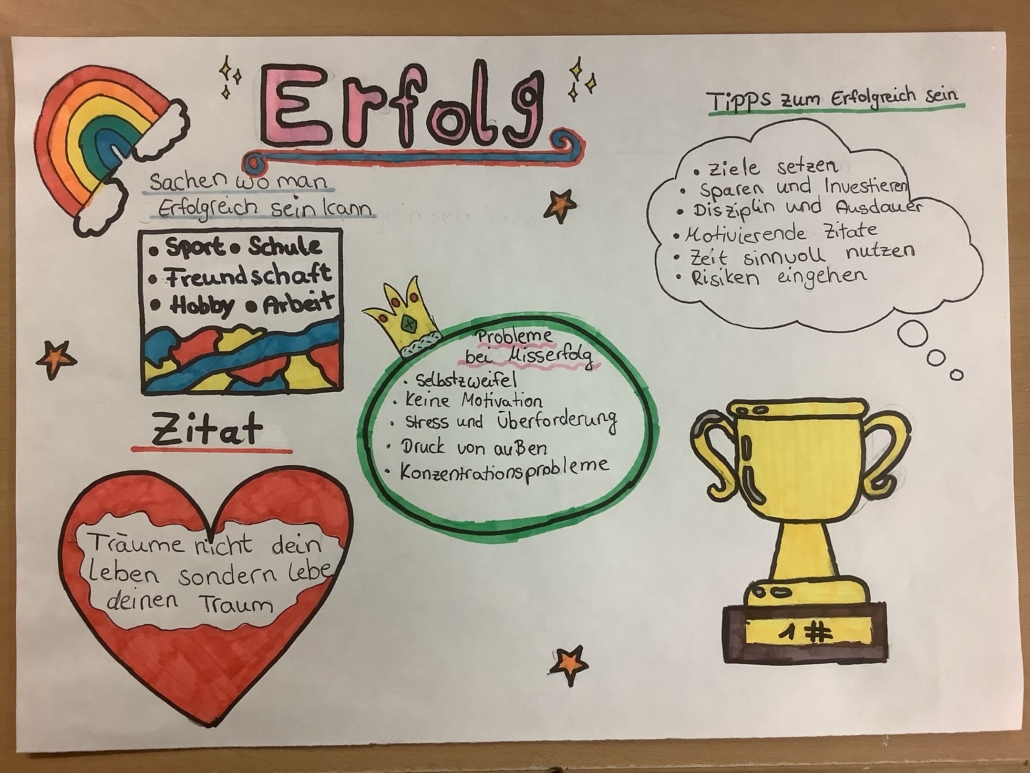 Erfolg
Sachen wo man
Erfolgreich sein kann
• Sport • Schule
• Freundschaft
• Hobby • Arbeit
Zitat
Träume nicht dein
leben sondern lebe
deinen Traum
Probleme
bei Misserfolg
• Selbstzweifel
• Keine Motivation
• Stress und Überforderung
• Druck von außen
• Konzentrationsprobleme
Tipps zum Erfolgreich sein
• Ziele setzen
• Sparen und Investieren
• Disziplin und Ausdauer
• Motivierende Zitate
• Zeit sinnvoll nutzen
• Risiken eingehen
1 #